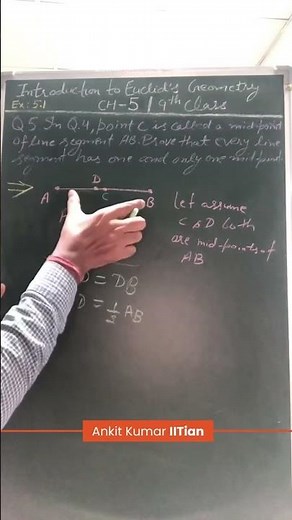 Introduction to Euclid's Geometry
Ex: 5.1 CH-5 / 9th Class
Q5. In Q.4, point C is called a mid-point
of line segment AB. Prove that every line
segment has one and only one mid-point
D
A C B
Let assume
C & D both
are mid-points of
AB
D = DB
D = 1/2 AB
Ankit Kumar IITian